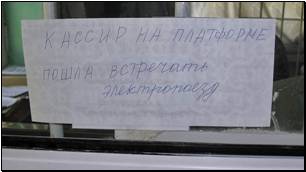 КАССИР НА ПЛАТФОРМЕ
ПОШЛА ВСТРЕЧАТЬ
ЭЛЕКТРОПОЕЗД